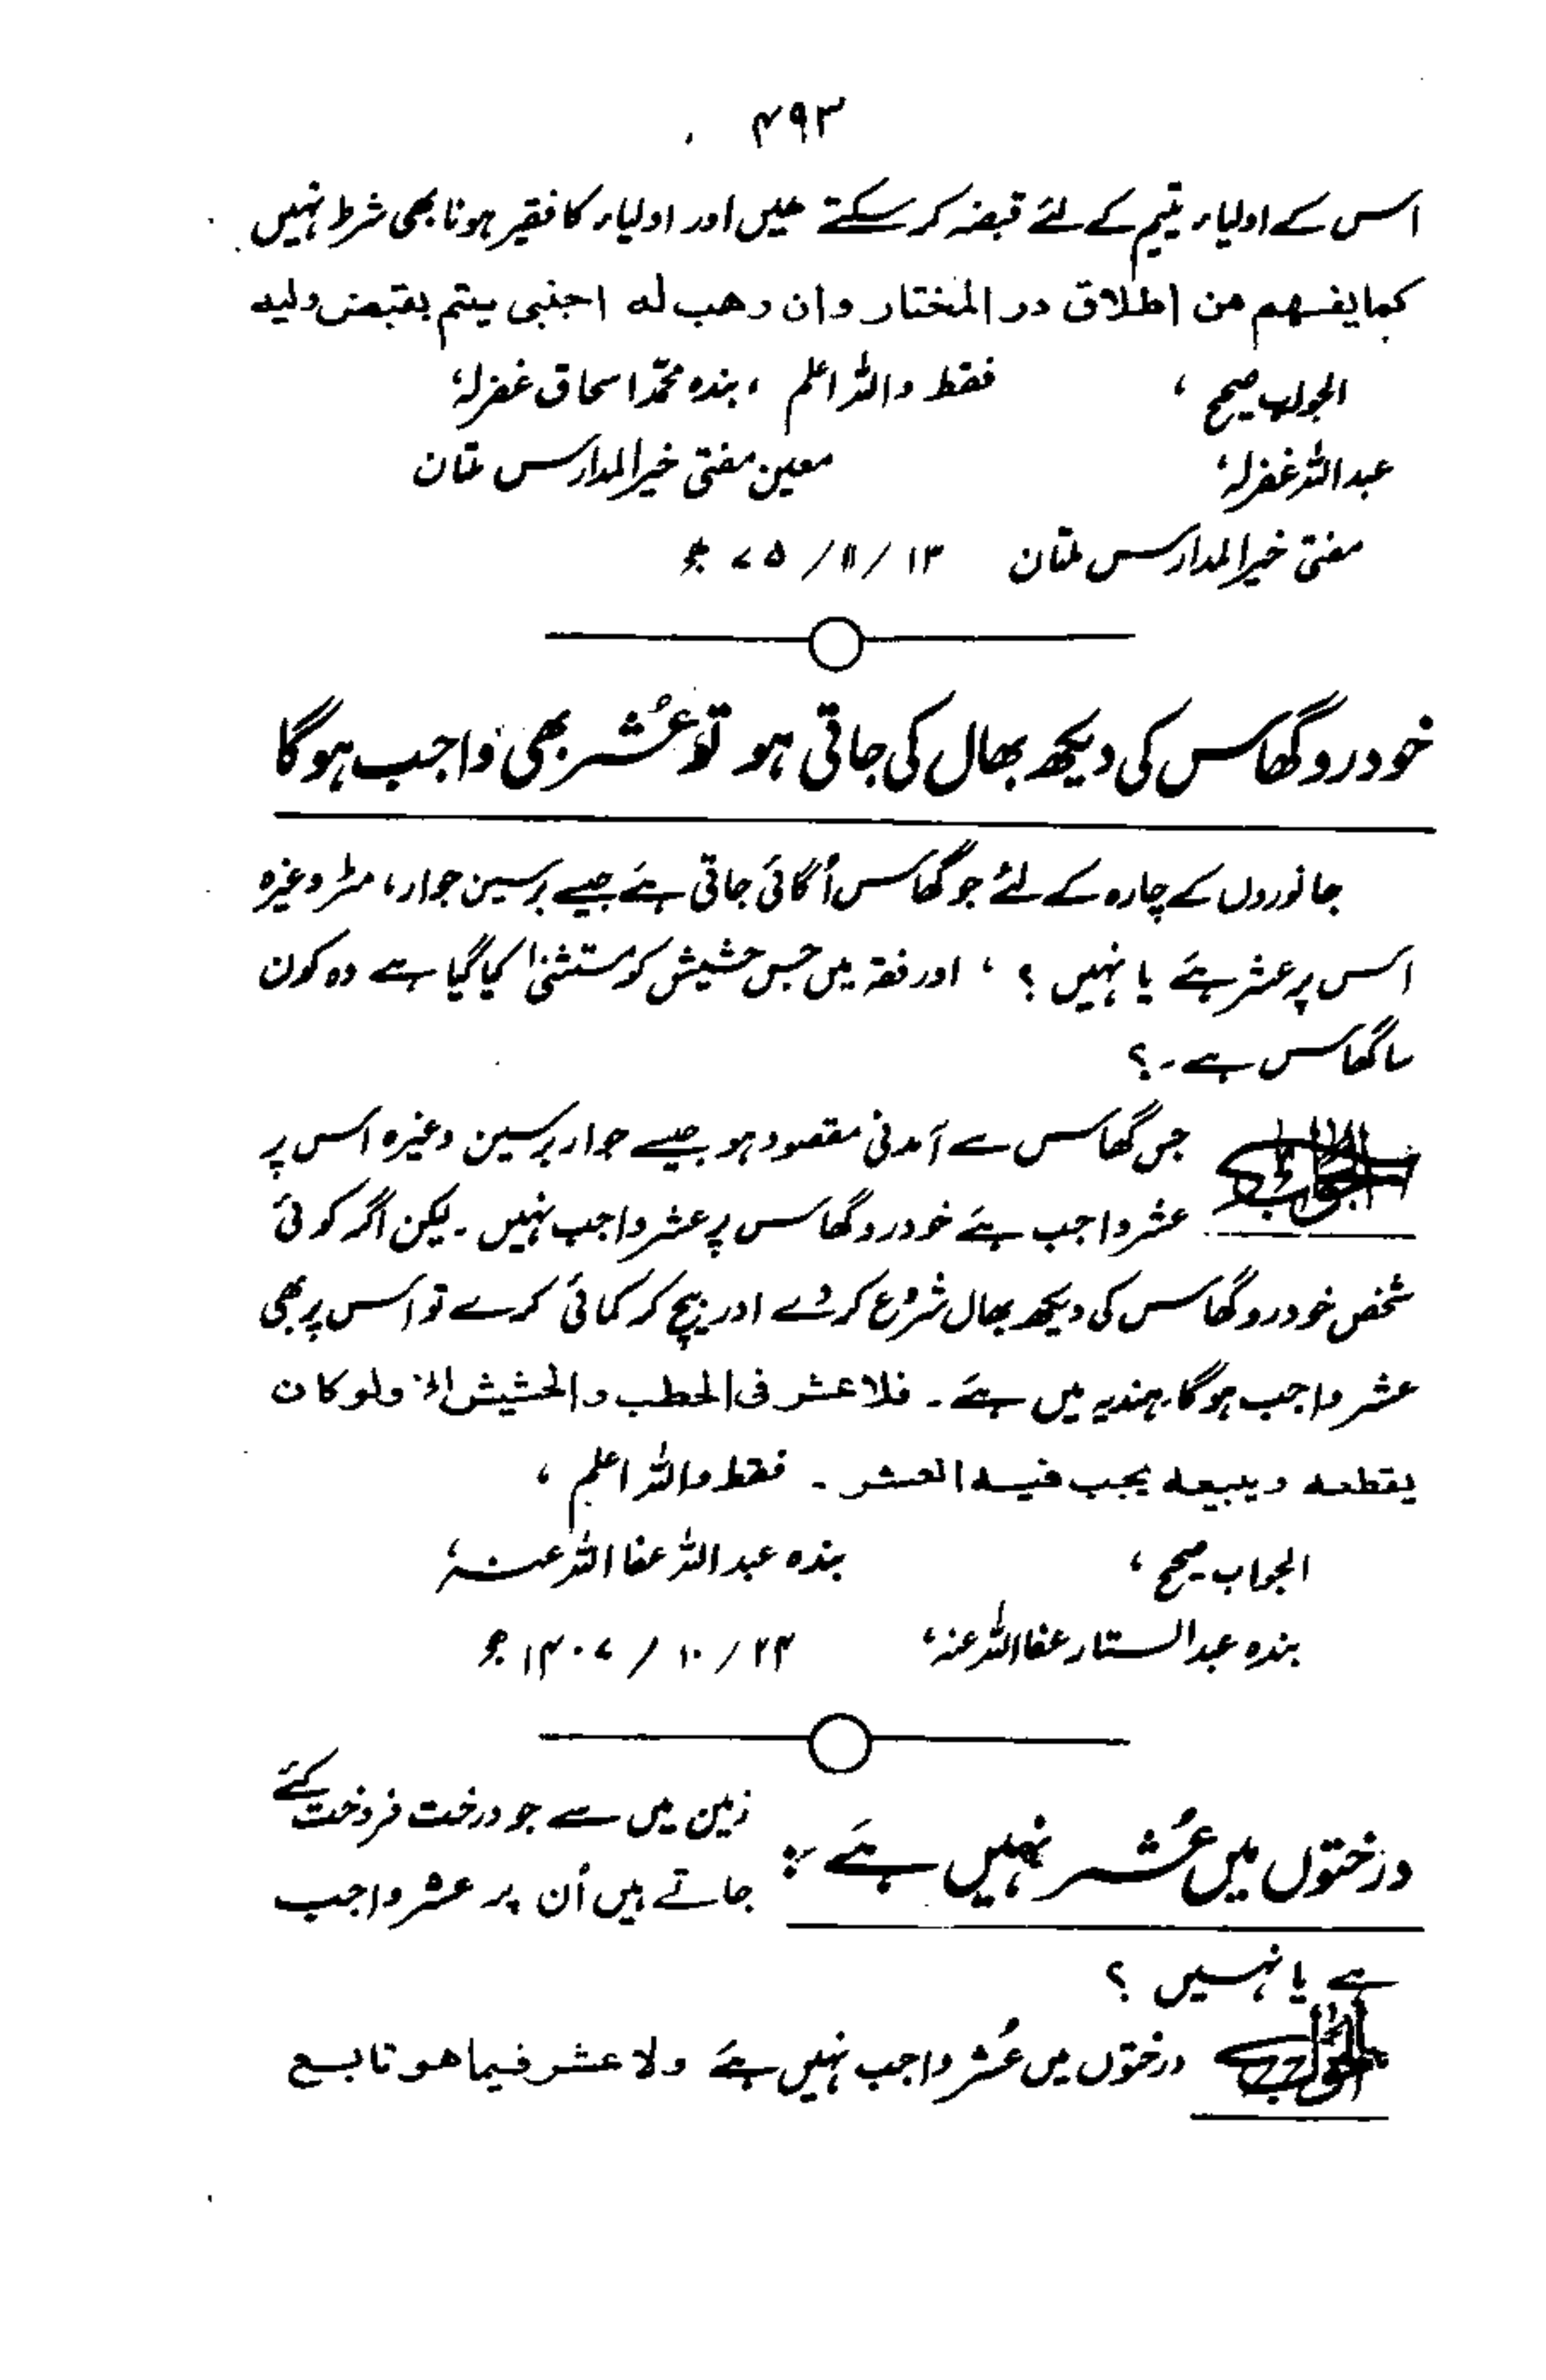 ۴۹۳
اس کے اولیاء یتیم کے لئے قبضہ کر سکتے ہیں اور اولیاء کا فقیر ہونا بھی شرط نہیں
کما یفہم من اطلاق در المختار وان وھب لہ اجنبی یتم بقبض ولیہ
الجواب صحیح ، فقط واللہ اعلم ، بندہ محمد اسحاق غفرلہ ،
عبداللہ غفرلہ ، معین مفتی خیر المدارس ملتان
مفتی خیر المدارس ملتان ۱۳ / ۱۱ / ۷۵ ھ
خودرو گھاس کی دیکھ بھال کی جاتی ہو تو عُشر بھی واجب ہوگا
جانوروں کے چارہ کے لئے جو گھاس اُگائی جاتی ہے جیسے برسین جوار ، مٹر وغیرہ
اس پر عشر ہے یا نہیں ؟ ، اور فقہ میں جس حشیش کو مستثنیٰ کیا گیا ہے وہ کون
سا گھاس ہے ۔ ؟
الجواب جس گھاس سے آمدنی مقصود ہو جیسے جوار برسین وغیرہ اس پر
عشر واجب ہے خودرو گھاس پر عشر واجب نہیں ۔ لیکن اگر کوئی
شخص خودرو گھاس کی دیکھ بھال شروع کر دے اور بیچ کر کمائی کرے تو اس پر بھی
عشر واجب ہوگا ۔ ہندیہ میں ہے ۔ فلا عشر فی الحطب والحشیش الخ ولو کان
یقطعہ ویبیعہ یجب فیہ العشر ۔ فقط واللہ اعلم ،
الجواب صحیح ، بندہ عبداللہ عفا اللہ عنہ ،
بندہ عبدالستار عفا اللہ عنہ ، ۲۴ / ۱۰ / ۱۴۰۷ ھ
درختوں میں عُشر نہیں ہے : زمین میں سے جو درخت فروخت کئے
جاتے ہیں اُن پر عشر واجب
ہے یا نہیں ؟
الجواب درختوں میں عُشر واجب نہیں ہے ولا عشر فیما ھو تابع